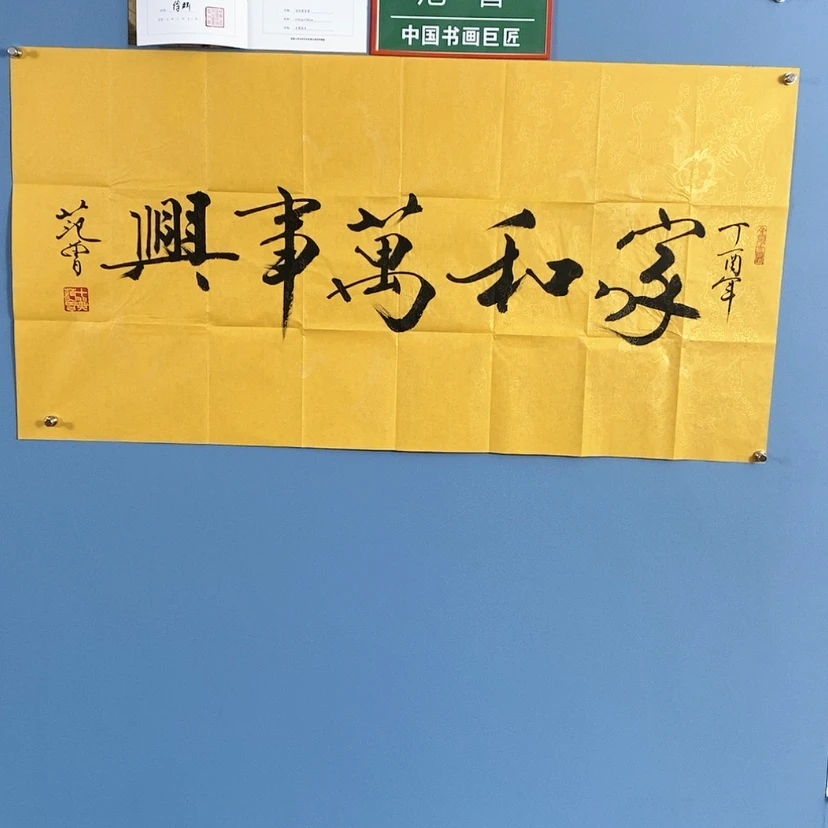 中国书画巨匠
丁酉年
家和萬事興
范曾